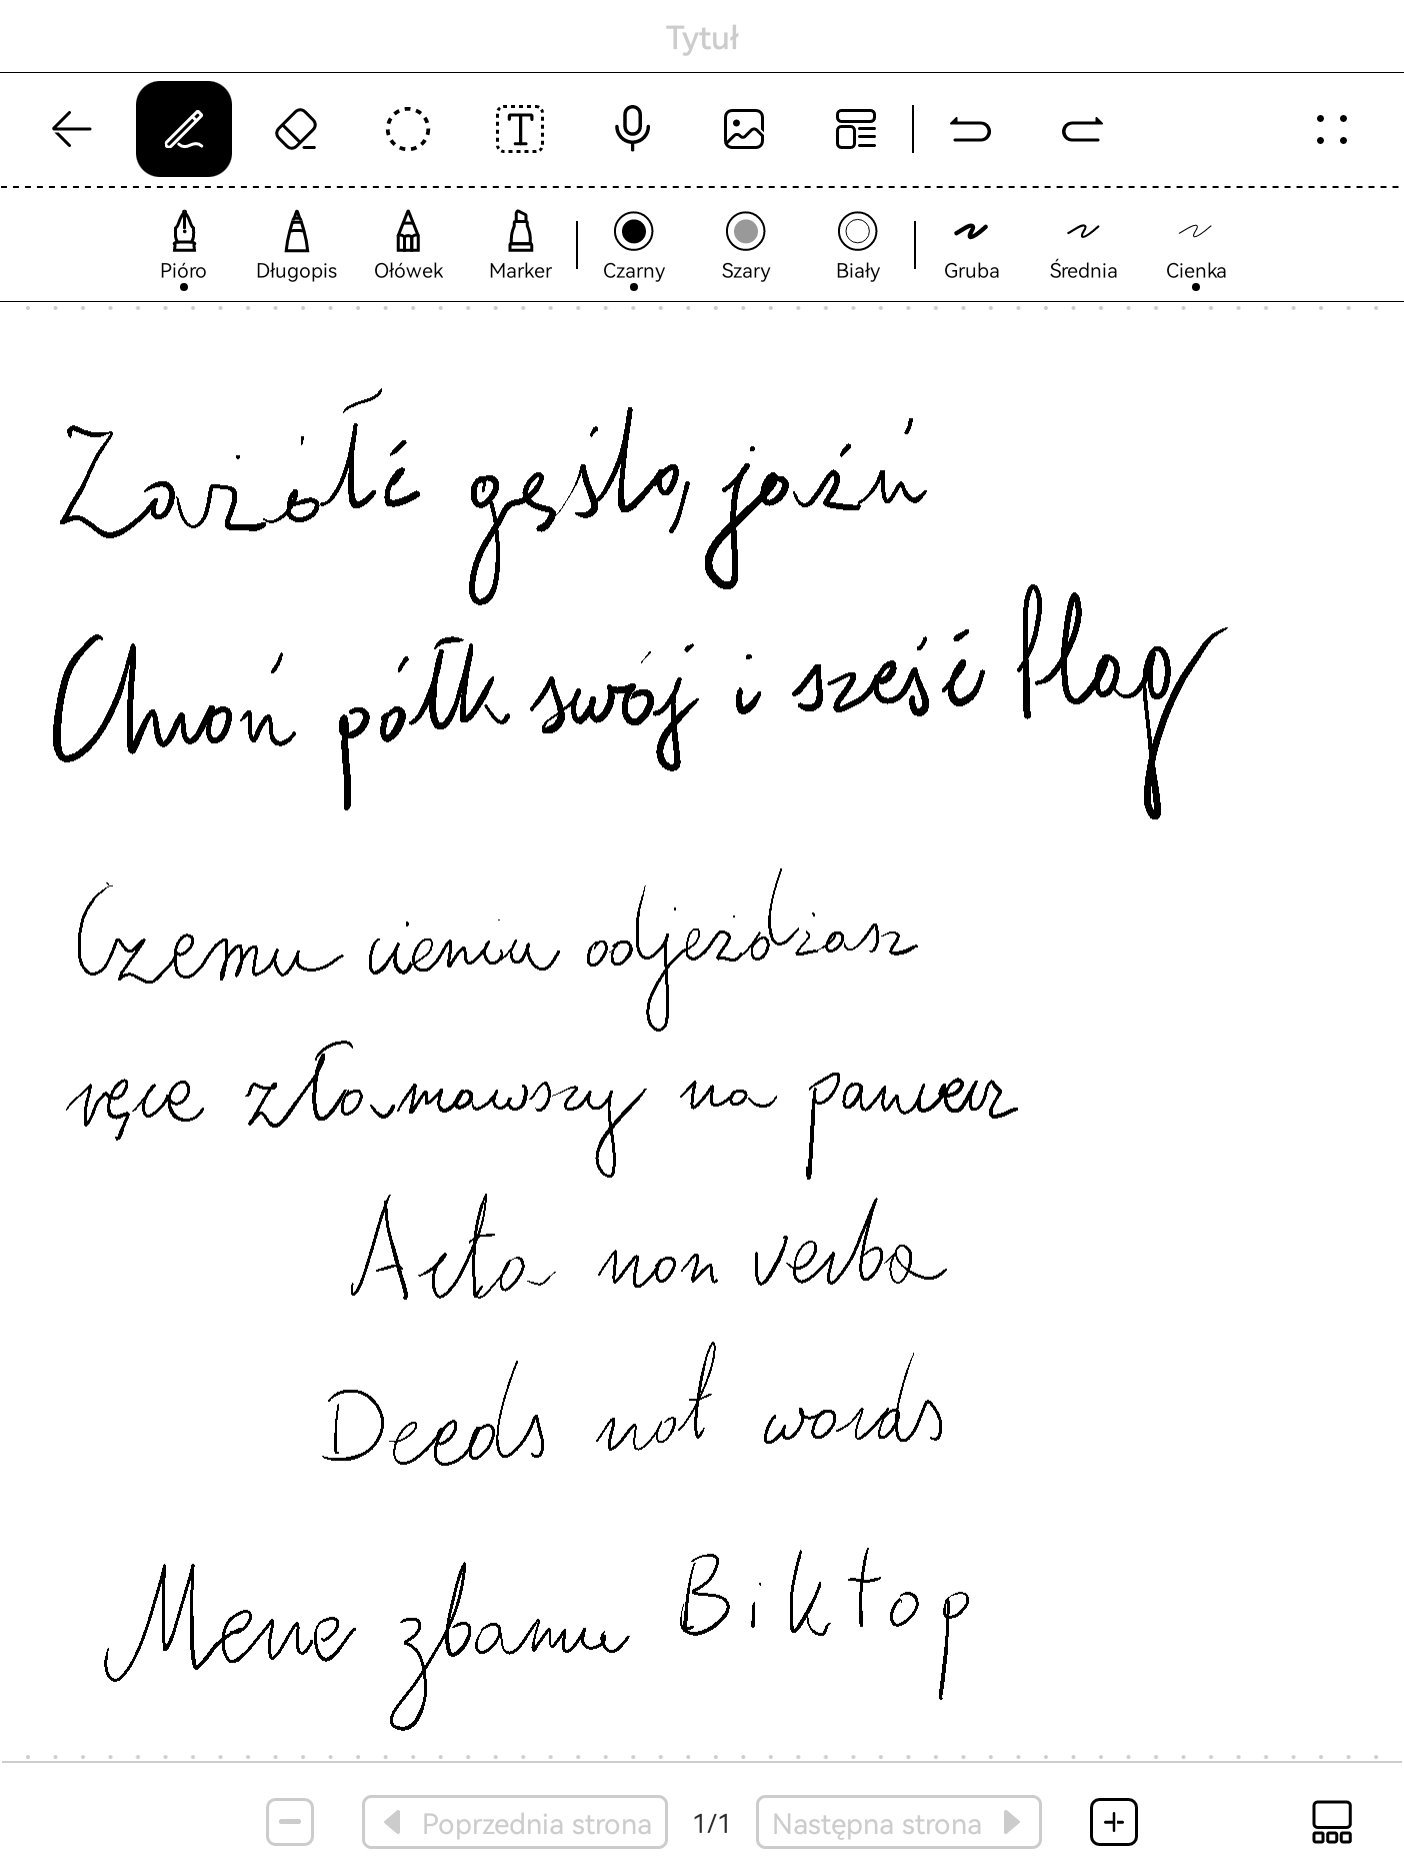 Tytuł
Pióro Długopis Ołówek Marker Czarny Szary Biały Gruba Średnia Cienka
Zażółć gęślą jaźń
Chroń półk swój i sześć flag
Czemu cieniu odjeżdżasz
ręce złamawszy na pancerz
Acta non verba
Deeds not words
Mene zbamu Виктор
Poprzednia strona 1/1 Następna strona